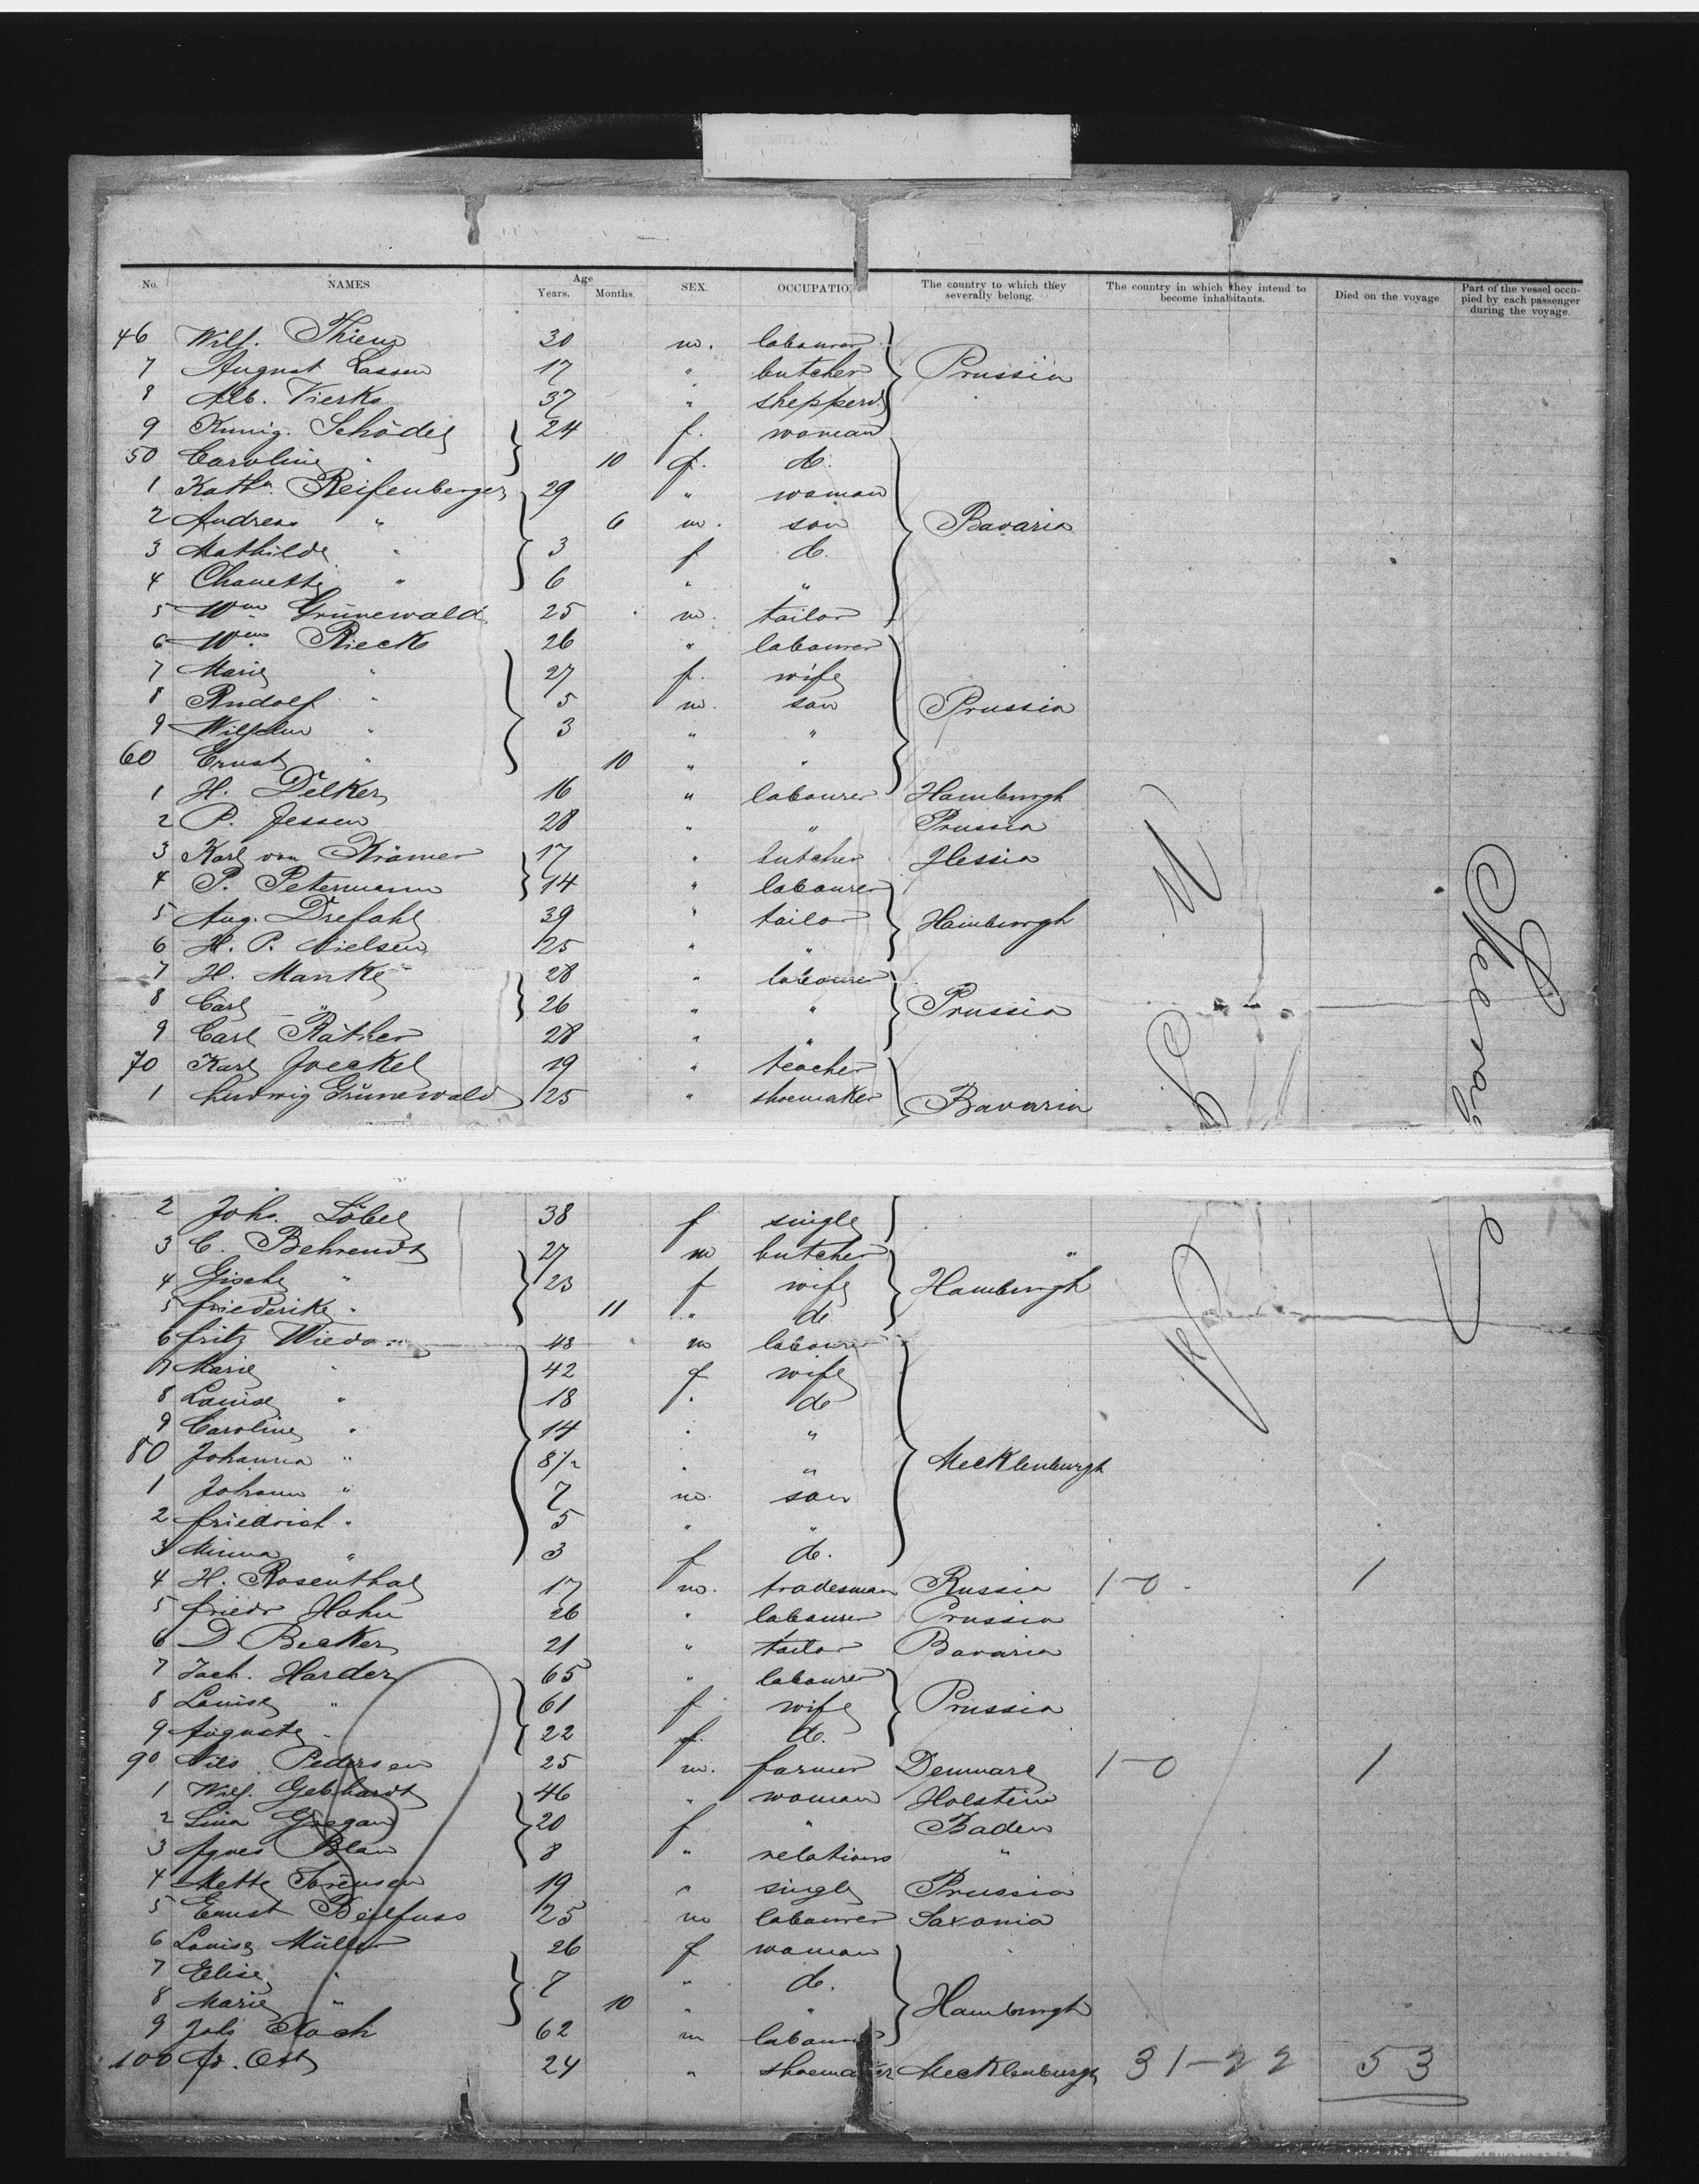 No. NAMES Age Years. Months. SEX. OCCUPATION The country to which they severally belong. The country in which they intend to become inhabitants. Died on the voyage Part of the vessel occupied by each passenger during the voyage.
46 Wilh. Thiens 30 m. labourer
7 August Lassen 17 " butcher Prussia
8 Alb. Vierks 37 " shepperd
9 Kunig. Schödel 24 f. woman
50 Caroline " 10 f. d.
1 Kath. Reifenberger 29 " woman
2 Andreas " 6 m. son Bavaria
3 Mathilde " 3 f d.
4 " 6 " "
5 Wm Grünewald 25 m. tailor
6 Wm. Rieck 26 " labourer
7 Marie " 27 f. wife
8 Rudolf " 5 m. son Prussia
9 Wilhelm " 3 " "
60 Ernst " 10 " "
1 H. Delker 16 " labourer Hamburgh
2 P. Jessen 28 " " Prussia
3 Karl von Krämer 17 " butcher Hessia
4 P. Petermann 14 " labourer
5 Aug. Drefahl 39 " tailor Hamburgh
6 H. P. Nielsen 25 " "
7 H. Manke 28 " labourer
8 Carl " 26 " " Prussia
9 Carl Räther 28 " "
70 Karl Joeckel 19 " teacher
1 Ludwig Grünewald 25 " shoemaker Bavaria
2 Johs. Löbel 38 f single
3 C. Behrendt 27 m butcher "
4 " 23 f wife Hamburgh
5 Friederike " 11 " d
6 Fritz 43 m labourer
7 Marie " 42 f wife
8 Louise " 18 " d
9 Caroline " 14 " "
80 Johanna " 8½ " " Mecklenburgh
1 Johann " 7 m. son
2 Friedrich " 5 " "
3 Minna " 3 f d.
4 H. Rosenthal 17 m. tradesman Russia 1-0 1
5 Friedr Hahn 26 " labourer Prussia
6 D. Becker 21 " tailor Bavaria
7 Joch. Harder 65 " labourer
8 Louise " 61 f wife Prussia
9 Auguste " 22 f. d.
90 Nils Pedersen 25 m. farmer Denmark 1-0 1
1 Wilh. Gebhardt 46 " woman Holstein
2 Lina 20 f " Baden
3 Agnes Blau 8 " relations "
4 Mette Sörensen 19 " single Prussia
5 Ernst Beilfuss 25 m labourer Saxonia
6 Louise Müller 26 f woman
7 Elise " 7 " d.
8 Marie " 10 " " Hamburgh
9 Johs Koch 62 m labourer
100 Fr. Ost 24 " shoemaker Mecklenburgh 31-22 53
Steerage